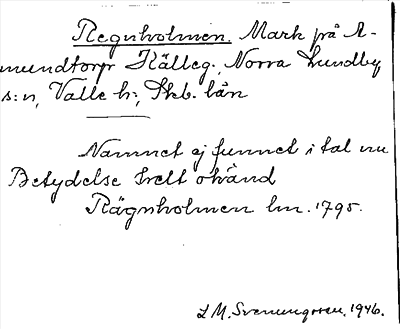 Regnholmen. Mark på A-
mundtorp Källeg., Norra Lundby
s:n, Valle h:, Skb. län
Namnet ej funnet i tal nu
Betydelse helt okänd
Rägnholmen lm. 1795.
L M. Svenungsson, 1946.